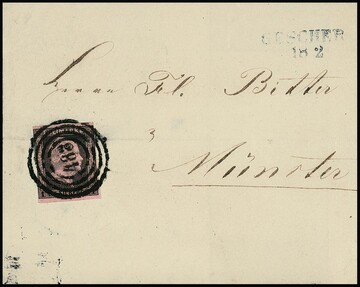 GESCHER
18 2
Herrn Fl. Bitter
Münster